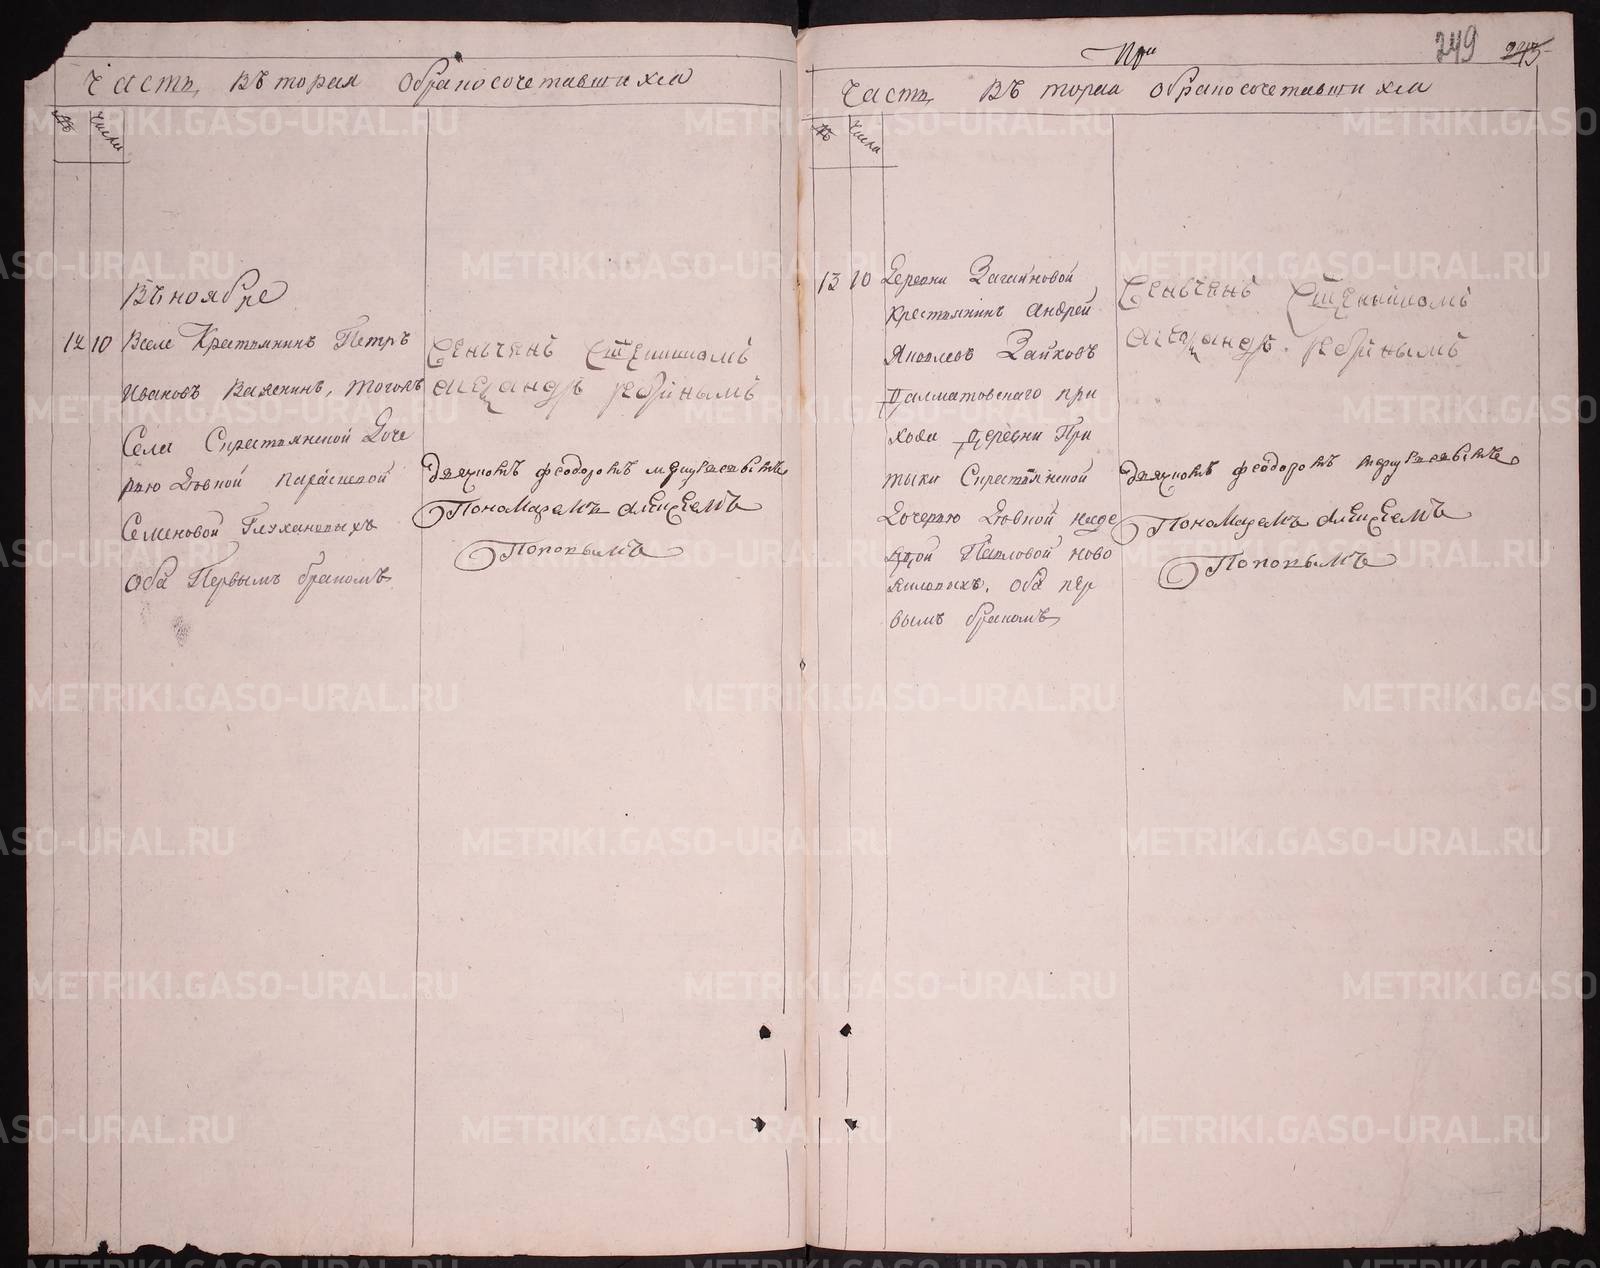 Часть вторая о бракосочетавшихся
№ Числа
Въ ноябре
12 10 В селе Крестьянинъ Петръ
Ивановъ Ваяскинъ, того жъ
Села Скрестьянской доче
рью Девкой Параскевой
Семеновой Глухановыхъ
оба Первымъ бракомъ
Венчанъ Священникомъ
Александръ
дьячкомъ Феодоромъ
Пономаремъ Алексеемъ
Поповымъ
При
249 245
Часть вторая о бракосочетавшихся
№ Числа
13 10 Деревни Загайновой
Крестьянинъ Андрей
Яковлевъ Зайковъ
Далматовскаго при
хода деревни При
тыки Скрестьянской
Дочерью Девкой Наде
ждой Павловой Ново
жиловыхъ. Оба пер
вымъ бракомъ
Венчанъ Священникомъ
Александръ
дьячкомъ Феодоромъ
Пономаремъ Алексеемъ
Поповымъ
METRIKI.GASO-URAL.RU